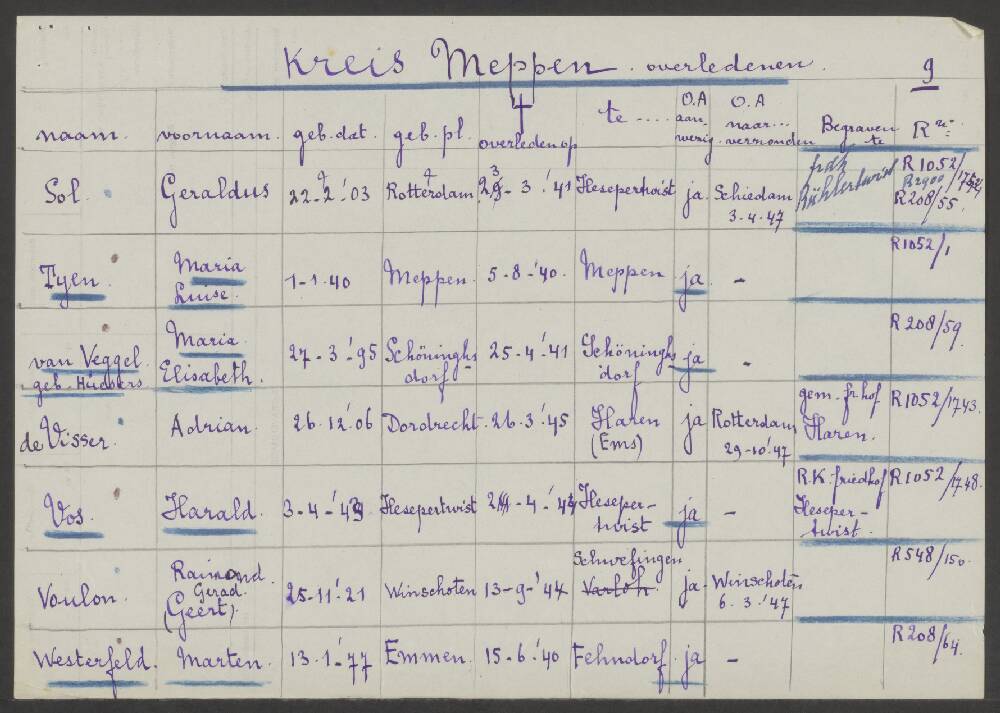 Kreis Meppen. overledenen. 9
naam. voornaam. geb. dat. geb. pl. † overleden op te .... O.A aanwezig O.A naar... verzonden Begraven te R nr.
Sol. Geraldus 22-2-'03 Rotterdam 23-3-'41 Hesepertwist ja. Schiedam 3-4-'47 Rühlertwist R1052/1752 R208/55.
Tyen. Maria Luise. 1-1-40 Meppen. 5-8-'40. Meppen ja - R1052/1
van Veggel. geb. Maria Elisabeth. 27-3-'95 Schöninghsdorf 25-4-'41 Schöninghsdorf ja - R208/59.
de Visser. Adrian. 26.12.'06 Dordrecht. 26.3.'45 Haren (Ems) ja Rotterdam 29-10-'47 gem. fr. hof Haren. R1052/1743.
Vos. Harald. 3-4-'43 Hesepertwist -4-'43 Hesepertwist ja - R.K. friedhof Hesepertwist. R1052/1748.
Voulon. Raimond. Gerad. (Geert). 25-11-'21 Winschoten 13-9-'44 Schwefingen Varloh ja- Winschoten 6.3.'47 R548/150.
Westerfeld. Marten. 13.1-'77 Emmen. 15-6-'40 Fehndorf ja - R208/64.